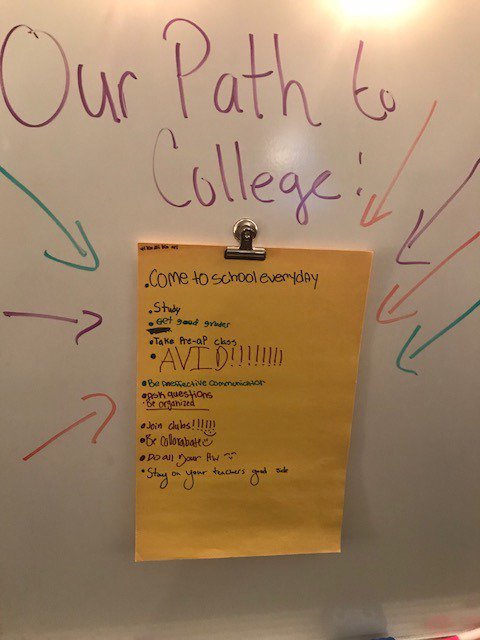 Our Path to
College:
• Come to school everyday
• Study
• Get good grades
• Take Pre-aP class
• AVID!!!!!!!!!
• Be an effective communicator
• Ask questions
• Be organized
• Join clubs!!!!!!
• Be Collorabate
• Do all your HW
• Stay on your teachers good side